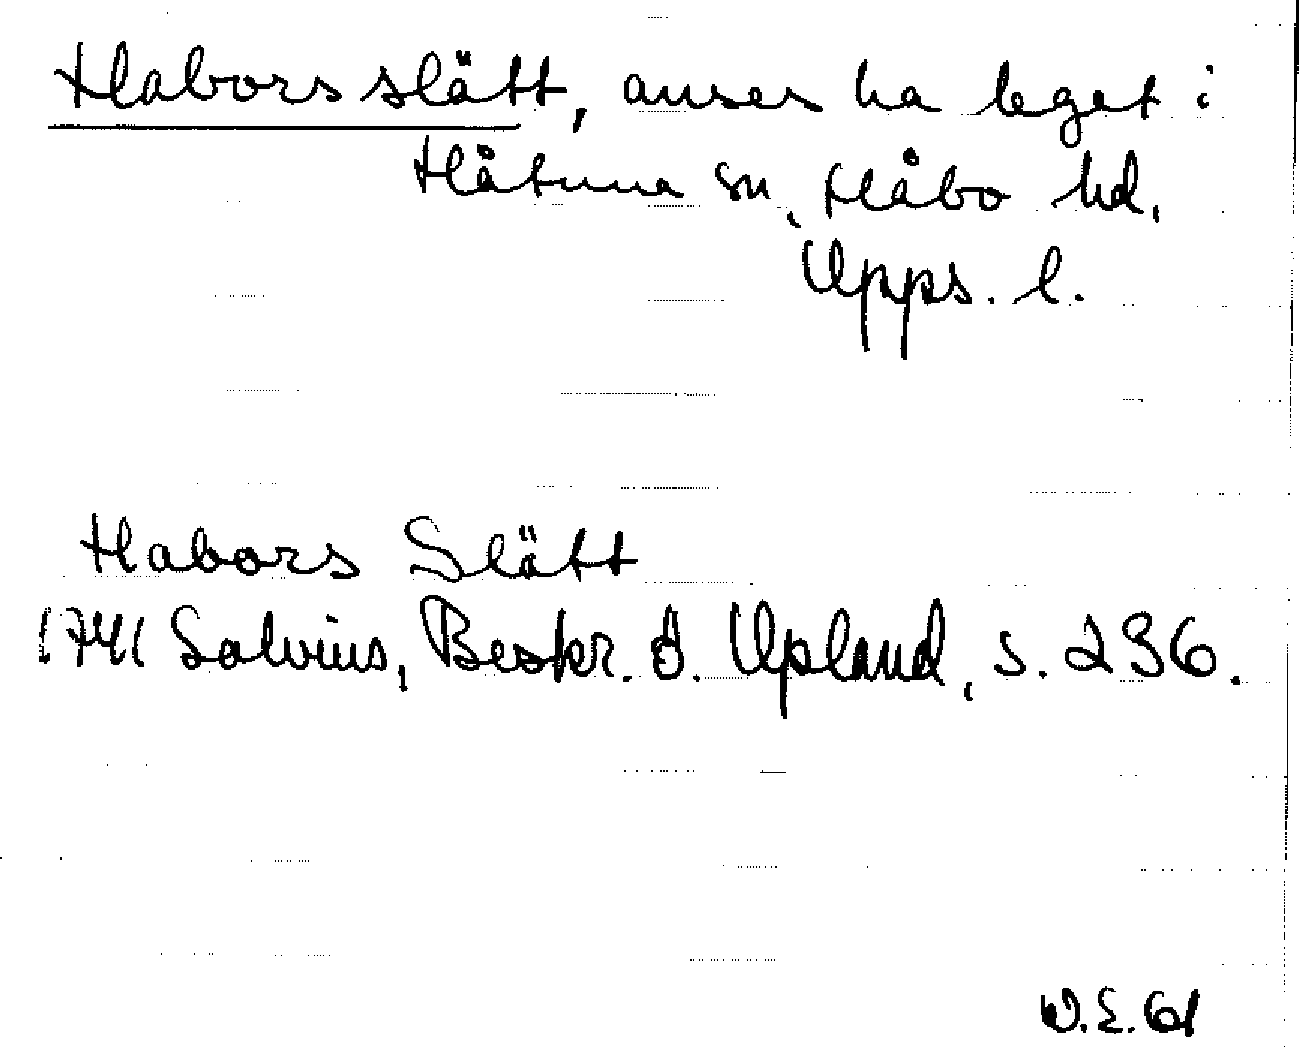 Haborsslätt, anses ha legat i
Håtuna sn, Håbo hd,
Upps. l.
Habors Slätt
1741 Salvius, Beskr. ö. Upland, s. 236.
W.E. 61